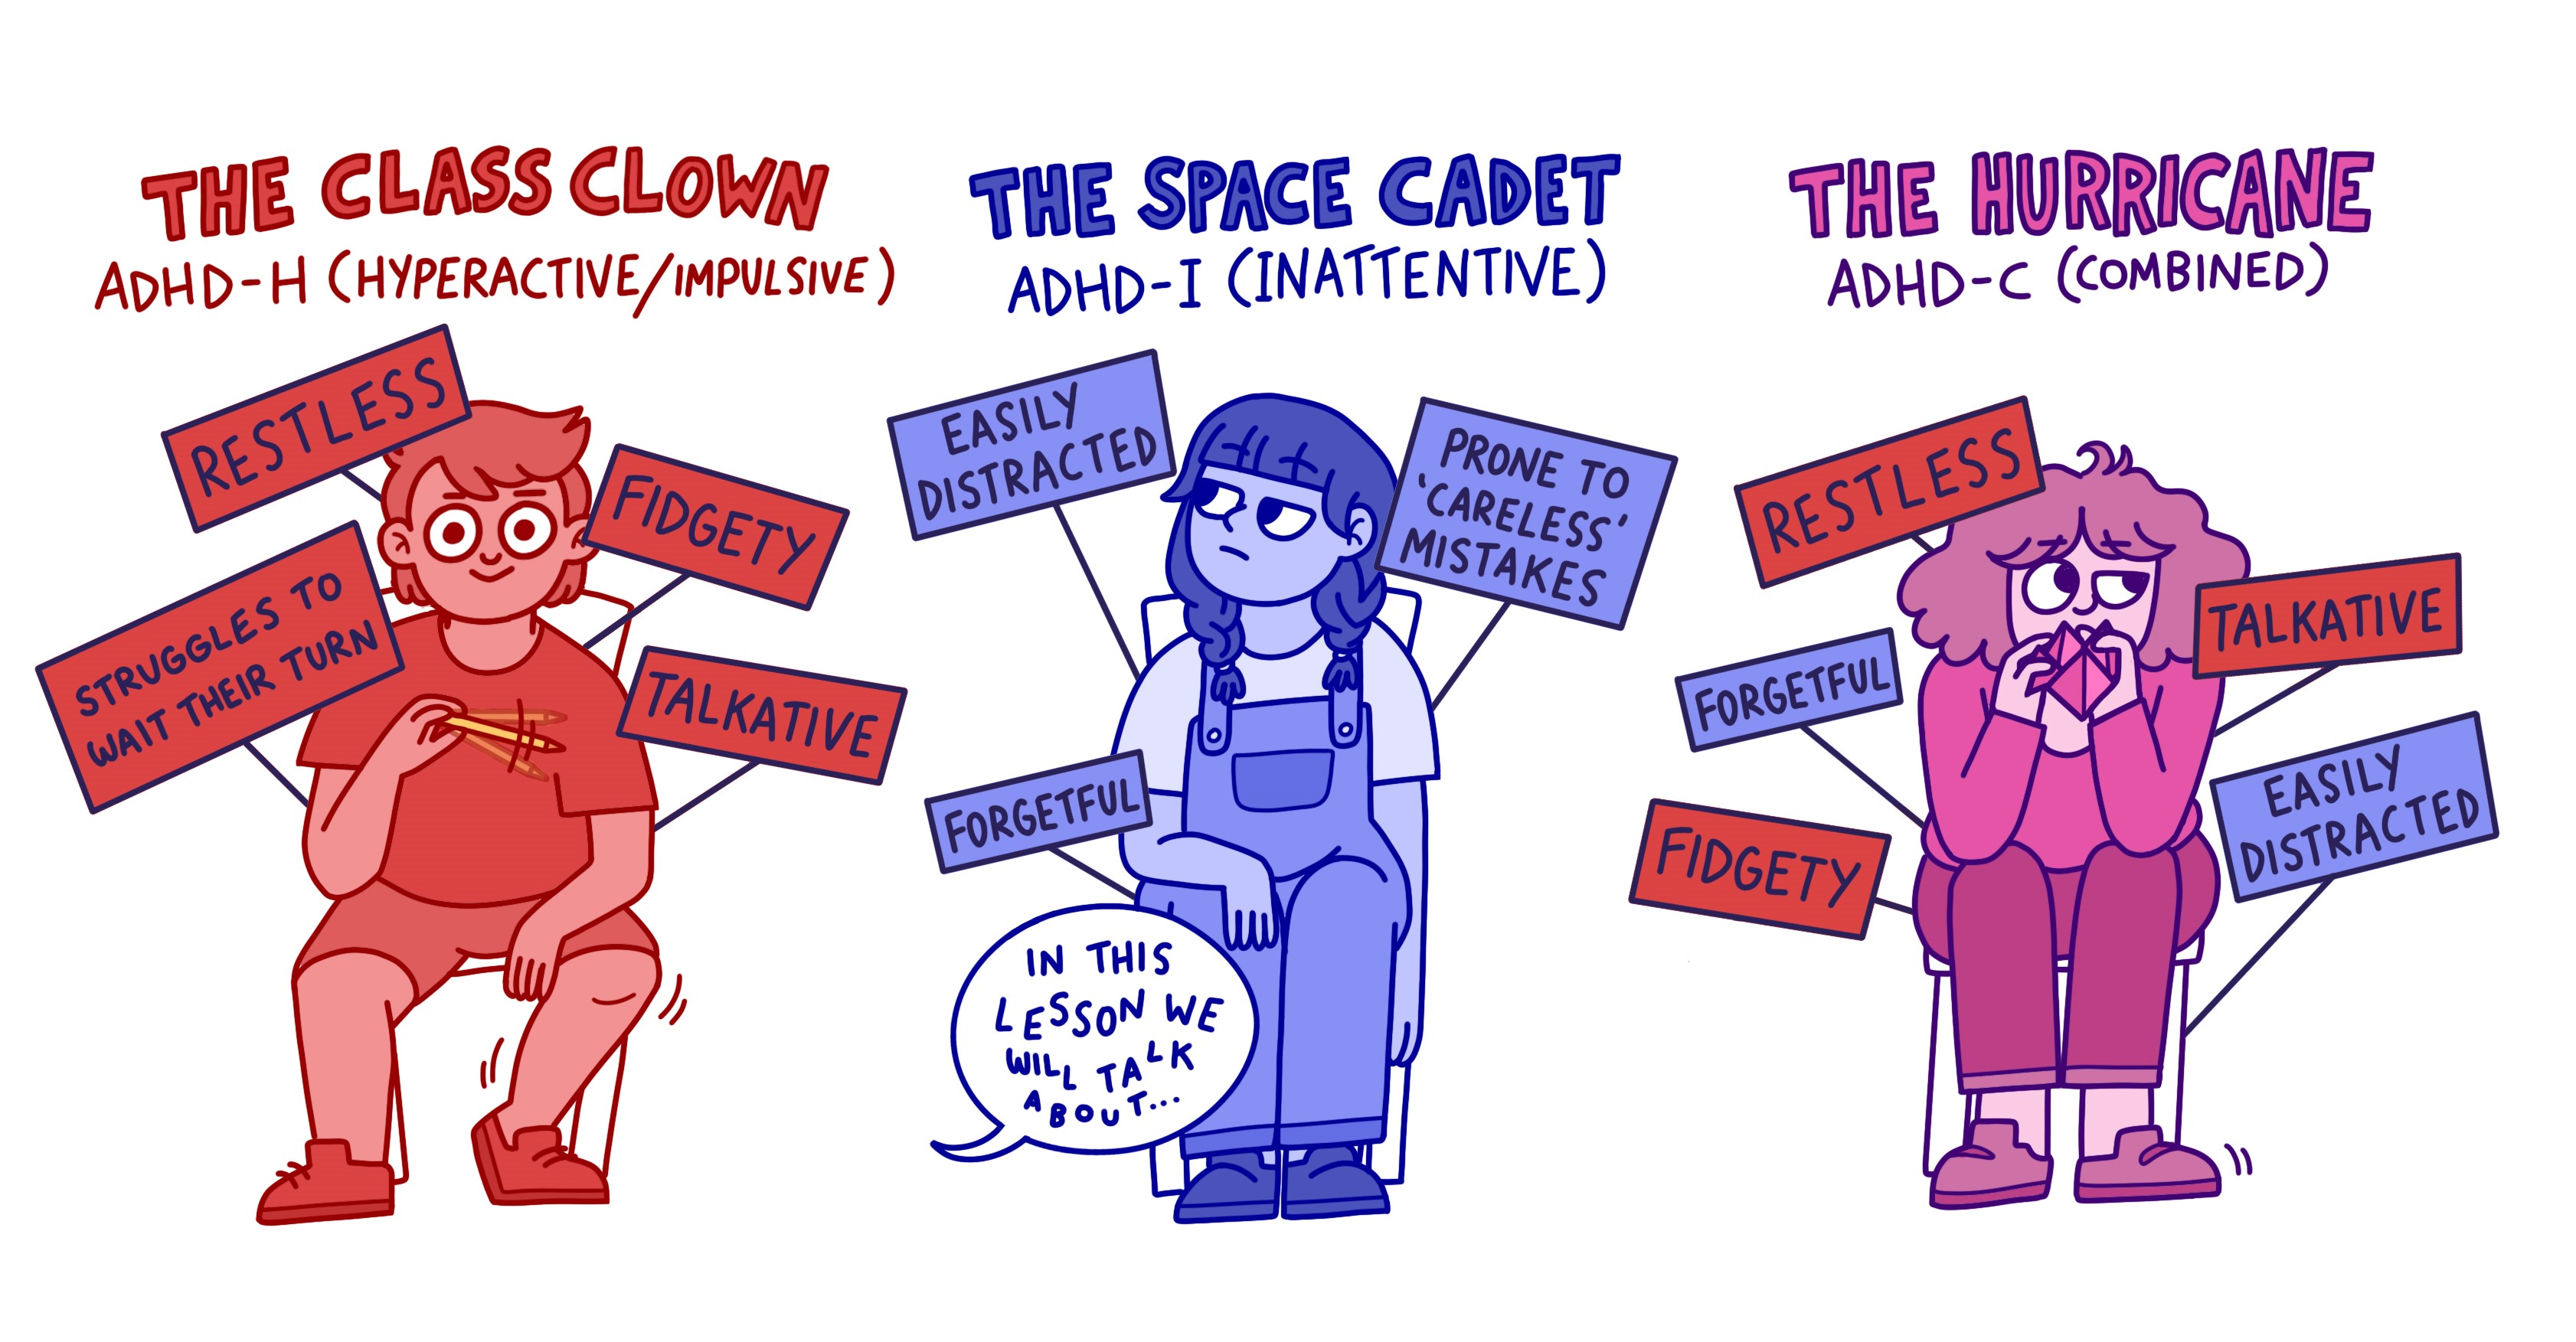 THE CLASS CLOWN
ADHD-H (HYPERACTIVE/IMPULSIVE)
RESTLESS
FIDGETY
STRUGGLES TO
WAIT THEIR TURN
TALKATIVE
THE SPACE CADET
ADHD-I (INATTENTIVE)
EASILY
DISTRACTED
PRONE TO
'CARELESS'
MISTAKES
FORGETFUL
IN THIS
LESSON WE
WILL TALK
ABOUT...
THE HURRICANE
ADHD-C (COMBINED)
RESTLESS
TALKATIVE
FORGETFUL
EASILY
DISTRACTED
FIDGETY